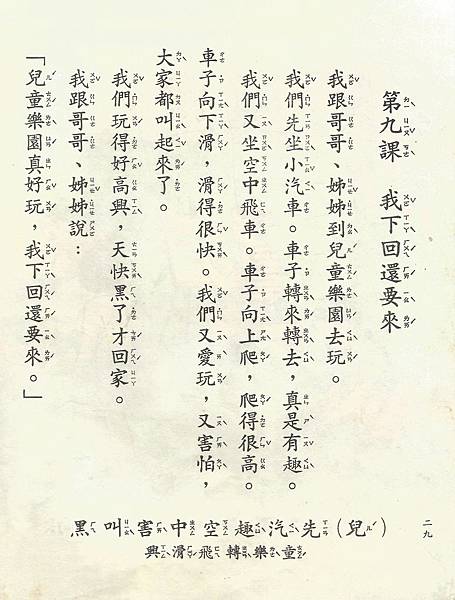 第九課　我下回還要來
我跟哥哥、姊姊到兒童樂園去玩。
我們先坐小汽車。車子轉來轉去，真是有趣。
我們又坐空中飛車。車子向上爬，爬得很高。
車子向下滑，滑得很快。我們又愛玩，又害怕，
大家都叫起來了。
我們玩得好高興，天快黑了才回家。
我跟哥哥、姊姊說：
「兒童樂園真好玩，我下回還要來。」
二九
（兒）先汽趣空中害叫黑
童樂轉飛滑興